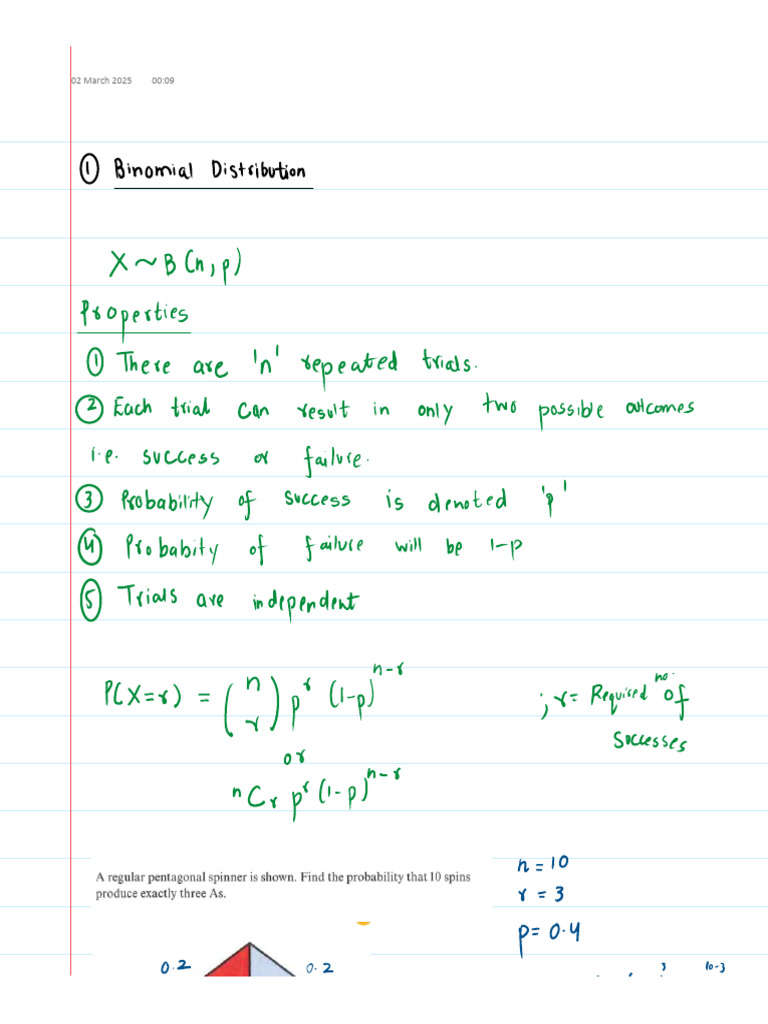 02 March 2025 00:09
① Binomial Distribution
X ~ B (n, p)
Properties
① There are 'n' repeated trials.
② Each trial can result in only two possible outcomes
i.e. success or failure.
③ Probability of success is denoted 'p'
④ Probabity of failure will be 1-p
⑤ Trials are independent
P(X=r) = (n r) p^r (1-p)^n-r ; r= Required no. of
Successes
or
ⁿCr p^r (1-p)^n-r
n = 10
A regular pentagonal spinner is shown. Find the probability that 10 spins
produce exactly three As.
r = 3
p= 0.4
0.2 0.2
3 10-3